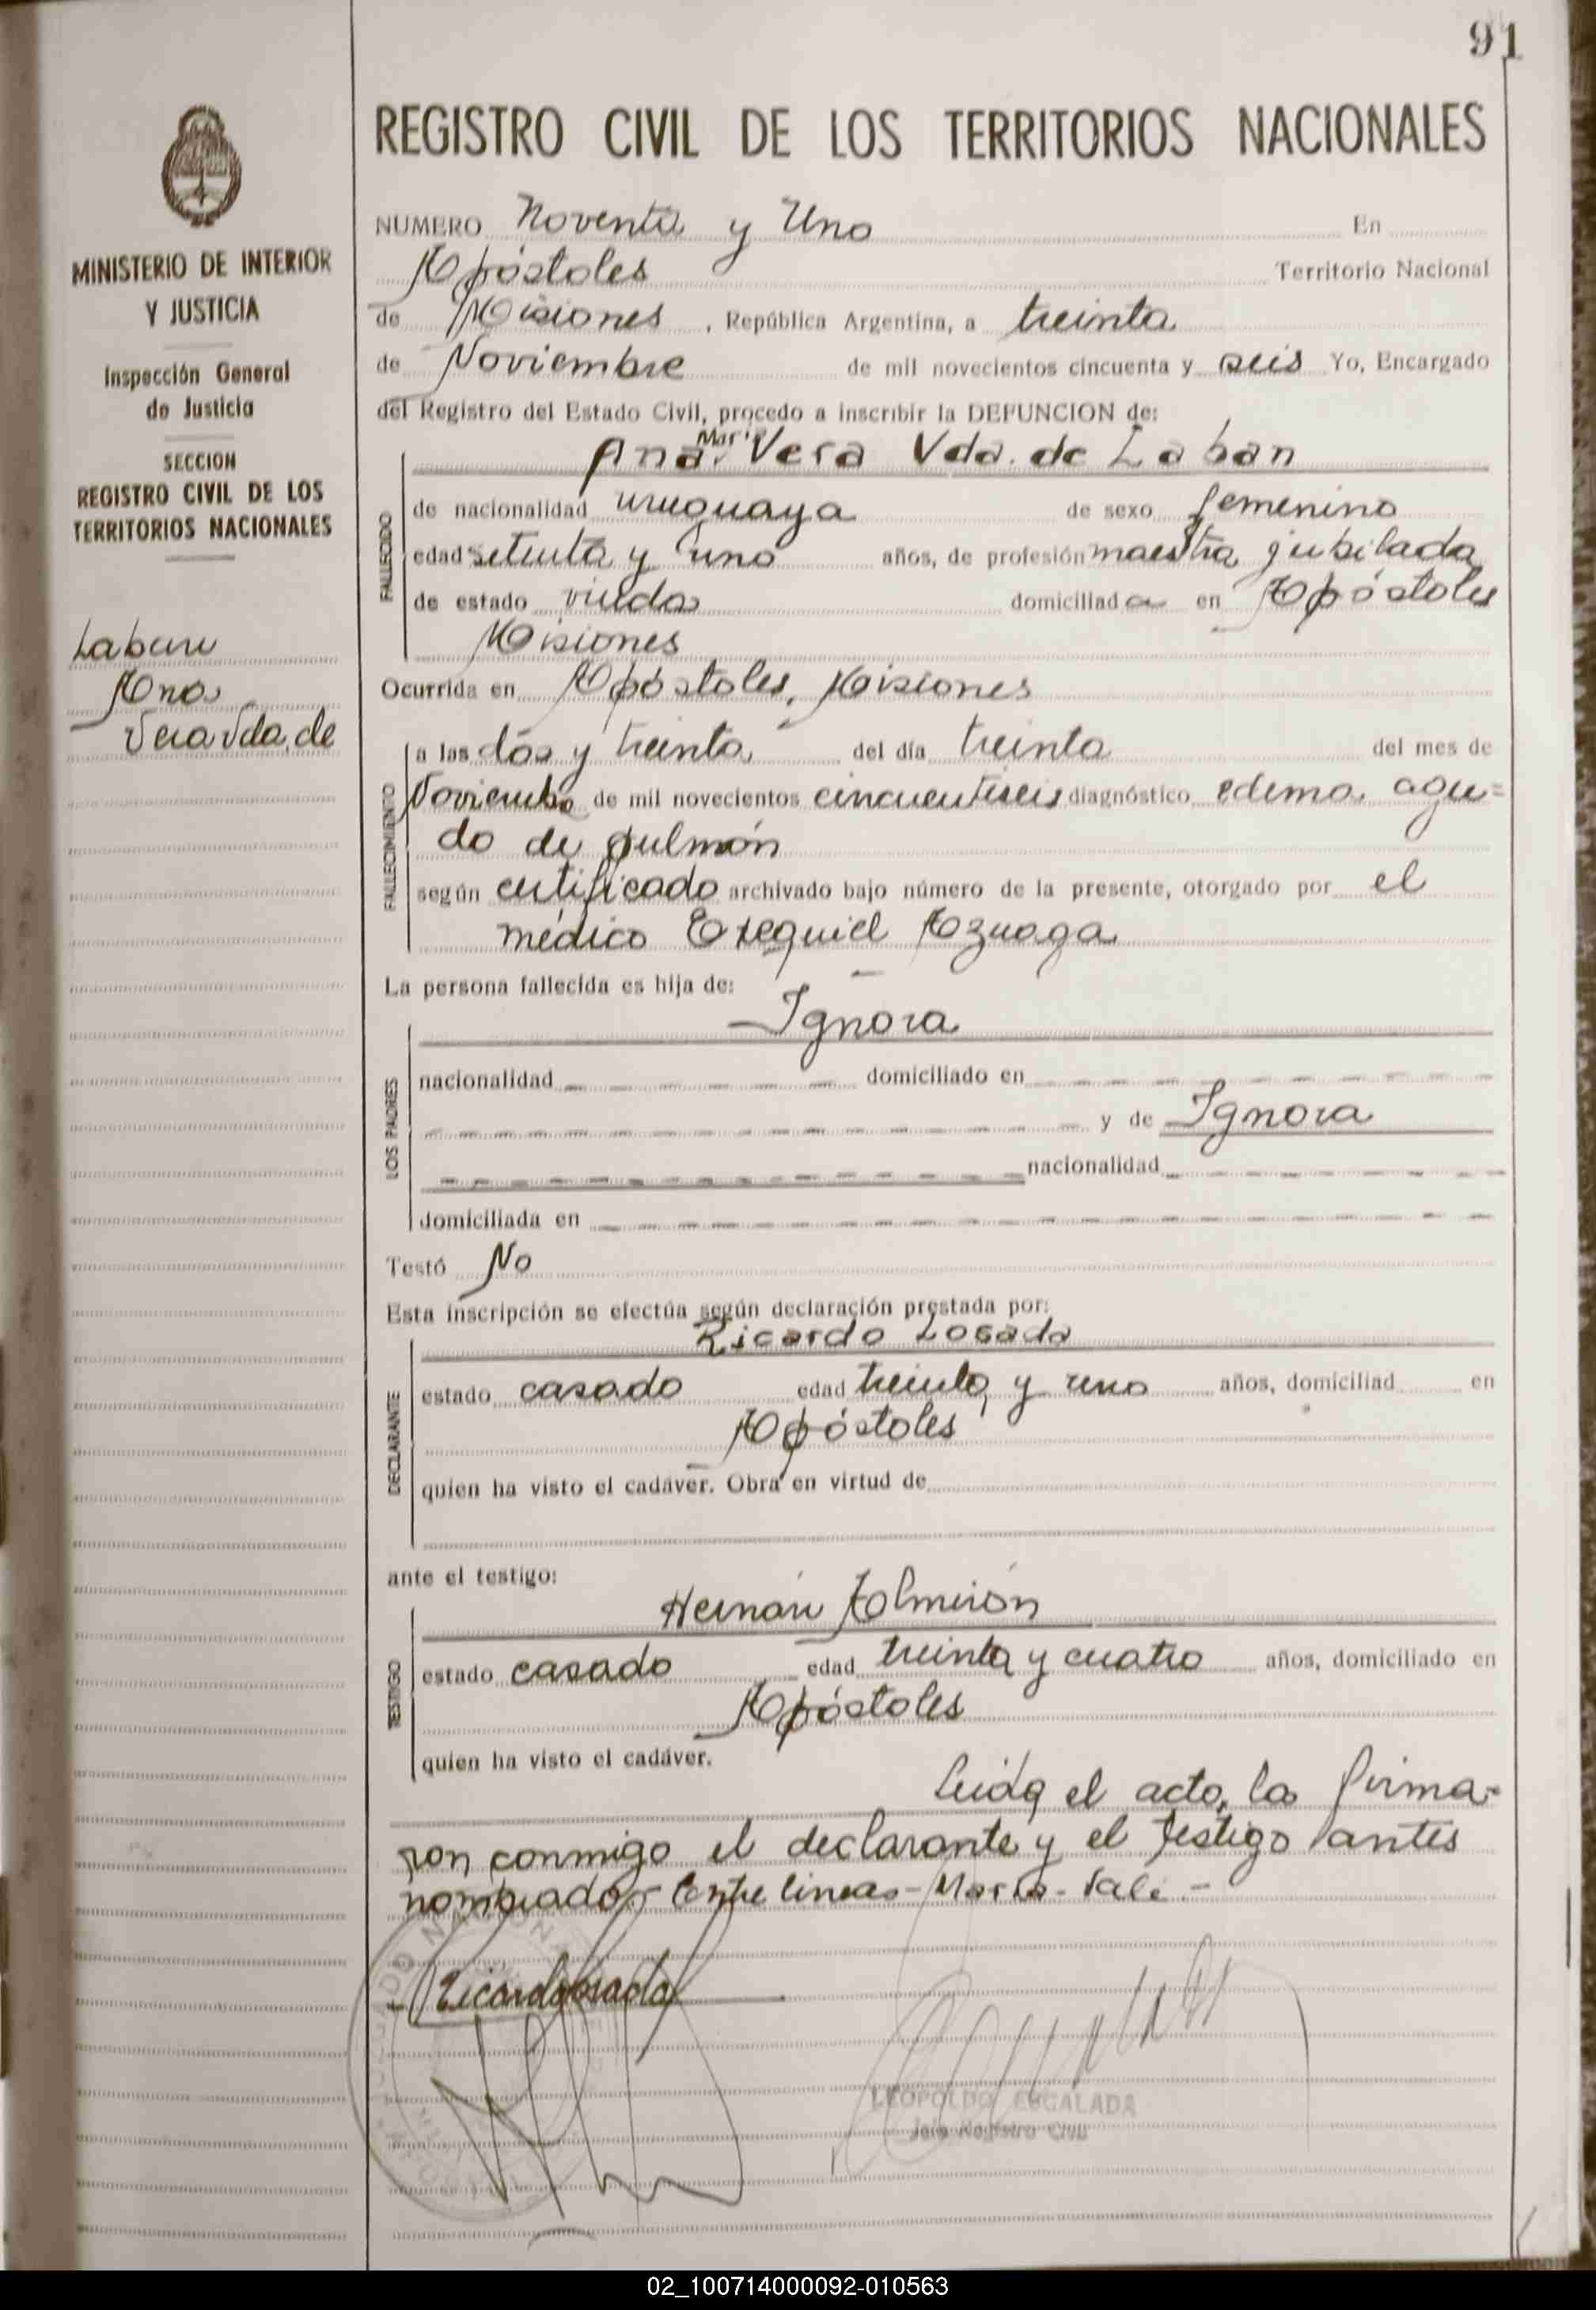 91
MINISTERIO DE INTERIOR
Y JUSTICIA
Inspección General
de Justicia
SECCION
REGISTRO CIVIL DE LOS
TERRITORIOS NACIONALES
Laban
Ana
Vera Vda. de
REGISTRO CIVIL DE LOS TERRITORIOS NACIONALES
NUMERO Noventa y Uno En
Apóstoles Territorio Nacional
de Misiones, República Argentina, a treinta
de Noviembre de mil novecientos cincuenta y seis Yo, Encargado
del Registro del Estado Civil, procedo a inscribir la DEFUNCION de:
Maria
Ana Vera Vda. de Laban
FALLECIDO
de nacionalidad uruguaya de sexo femenino
edad setenta y uno años, de profesión maestra jubilada
de estado viuda domiciliada en Apóstoles
Misiones
Ocurrida en Apóstoles, Misiones
FALLECIMIENTO
a las dos y treinta del día treinta del mes de
Noviembre de mil novecientos cincuentiseis diagnóstico edema agu=
do de pulmón
según certificado archivado bajo número de la presente, otorgado por el
médico Exequiel Azuaga
La persona fallecida es hija de:
Ignora
LOS PADRES
nacionalidad domiciliado en
y de Ignora
nacionalidad
domiciliada en
Testó No
Esta inscripción se efectúa según declaración prestada por:
Ricardo Losada
DECLARANTE
estado casado edad treinta y uno años, domiciliad en
Apóstoles
quien ha visto el cadáver. Obra en virtud de
ante el testigo:
Hernán Almirón
TESTIGO
estado casado edad treinta y cuatro años, domiciliado en
Apóstoles
quien ha visto el cadáver.
Leida el acta, la firma-
ron conmigo el declarante y el testigo antes
nombrado.- Entre lineas - Maria - Vale.-
Ricardo Losada
LEOPOLDO ESCALADA
Jefe Registro Civil
02_100714000092-010563